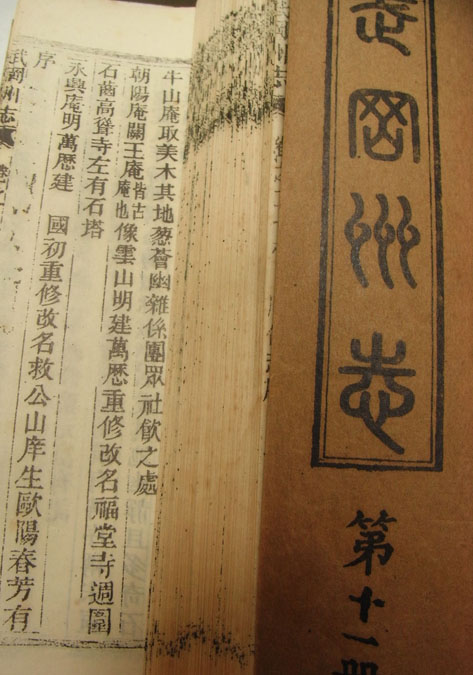 武岡州志
第十一册
牛山庵取美木其地葱薈幽雜係團眾社飲之處
朝陽庵關王庵皆古庵也像雲山明建萬歷重修改名福堂寺週圍
石齒高聳寺左有石塔
永興庵明萬歷建 國初重修改名救公山庠生歐陽春芳有
序
武岡州志